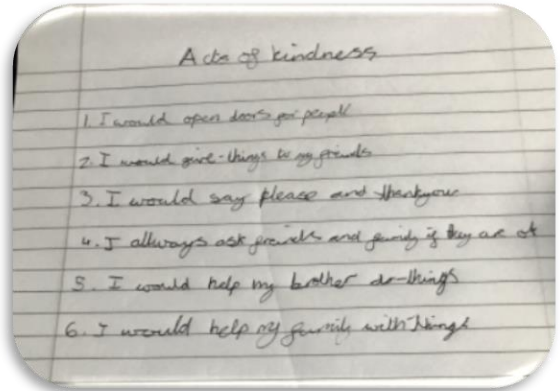 Acts of kindness
1. I would open doors for people
2. I would give things to my friends
3. I would say please and thankyou
4. I allways ask friends and family if they are ok
5. I would help my brother do things
6. I would help my family with things